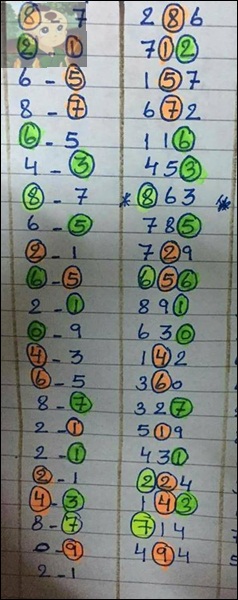 8 7 286
2 - 1 712
6 - 5 157
8 - 7 672
6 - 5 116
4 - 3 453
8 - 7 * 863 *
6 - 5 785
2 - 1 729
6 - 5 656
2 - 1 891
0 - 9 630
4 - 3 142
6 - 5 360
8 - 7 327
2 - 1 519
2 - 1 431
2 - 1 224
4 - 3 143
8 - 7 714
0 - 9 494
2 - 1